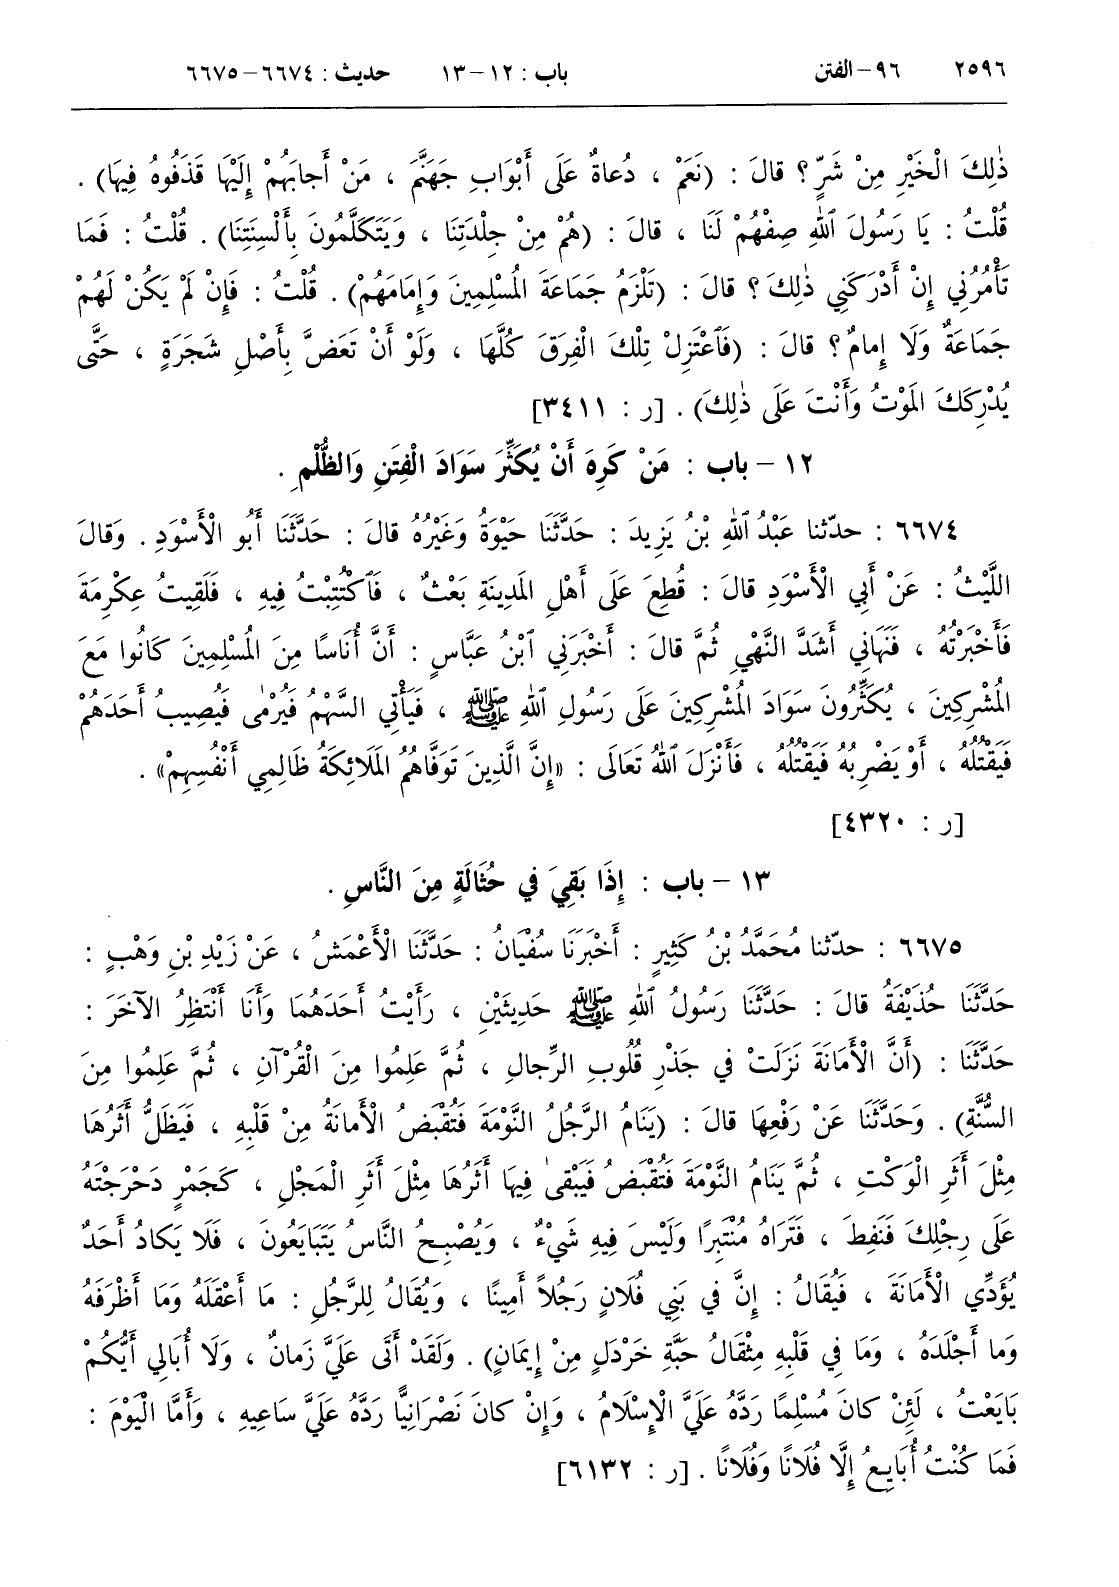 ٢٥٩٦ ٩٦-الفتن باب : ١٢-١٣ حديث : ٦٦٧٤-٦٦٧٥
ذٰلِكَ الْخَيْرِ مِنْ شَرٍّ ؟ قالَ : (نَعَمْ ، دُعاةٌ عَلَى أَبْوَابِ جَهَنَّمَ ، مَنْ أَجابَهُمْ إِلَيْهَا قَذَفُوهُ فِيهَا) .
قُلْتُ : يَا رَسُولَ ٱللهِ صِفْهُمْ لَنَا ، قالَ : (هُمْ مِنْ جِلْدَتِنَا ، وَيَتَكَلَّمُونَ بِأَلْسِنَتِنَا) . قُلْتُ : فَمَا
تَأْمُرُنِي إِنْ أَدْرَكَنِي ذٰلِكَ ؟ قالَ : (تَلْزَمُ جَمَاعَةَ الْمُسْلِمِينَ وَإِمَامَهُمْ) . قُلْتُ : فَإِنْ لَمْ يَكُنْ لَهُمْ
جَمَاعَةٌ وَلَا إِمامٌ ؟ قالَ : (فَٱعْتَزِلْ تِلْكَ الْفِرَقَ كُلَّهَا ، وَلَوْ أَنْ تَعَضَّ بِأَصْلِ شَجَرَةٍ ، حَتَّى
يُدْرِكَكَ الْمَوْتُ وَأَنْتَ عَلَى ذٰلِكَ) . [ر : ٣٤١١]
١٢ - باب : مَنْ كَرِهَ أَنْ يُكَثِّرَ سَوَادَ الْفِتَنِ وَالظُّلْمِ .
٦٦٧٤ : حدّثنا عَبْدُ ٱللهِ بْنُ يَزِيدَ : حَدَّثَنَا حَيْوَةُ وَغَيْرُهُ قالَ : حَدَّثَنَا أَبُو الْأَسْوَدِ . وَقالَ
اللَّيْثُ : عَنْ أَبِي الْأَسْوَدِ قالَ : قُطِعَ عَلَى أَهْلِ الْمَدِينَةِ بَعْثٌ ، فَٱكْتُتِبْتُ فِيهِ ، فَلَقِيتُ عِكْرِمَةَ
فَأَخْبَرْتُهُ ، فَنَهَانِي أَشَدَّ النَّهْيِ ثُمَّ قالَ : أَخْبَرَنِي ٱبْنُ عَبَّاسٍ : أَنَّ أُنَاسًا مِنَ الْمُسْلِمِينَ كَانُوا مَعَ
الْمُشْرِكِينَ ، يُكَثِّرُونَ سَوَادَ الْمُشْرِكِينَ عَلَى رَسُولِ ٱللهِ ﷺ ، فَيَأْتِي السَّهْمُ فَيُرْمٰى فَيُصِيبُ أَحَدَهُمْ
فَيَقْتُلُهُ ، أَوْ يَضْرِبُهُ فَيَقْتُلُهُ ، فَأَنْزَلَ ٱللهُ تَعَالَى : «إِنَّ الَّذِينَ تَوَفَّاهُمُ الْمَلَائِكَةُ ظَالِمِي أَنْفُسِهِمْ» .
[ر : ٤٣٢٠]
١٣ - باب : إِذَا بَقِيَ في حُثَالَةٍ مِنَ النَّاسِ .
٦٦٧٥ : حدّثنا مُحَمَّدُ بْنُ كَثِيرٍ : أَخْبَرَنَا سُفْيَانُ : حَدَّثَنَا الْأَعْمَشُ ، عَنْ زَيْدِ بْنِ وَهْبٍ :
حَدَّثَنَا حُذَيْفَةُ قالَ : حَدَّثَنَا رَسُولُ ٱللهِ ﷺ حَدِيثَيْنِ ، رَأَيْتُ أَحَدَهُمَا وَأَنَا أَنْتَظِرُ الآخَرَ :
حَدَّثَنَا : (أَنَّ الْأَمَانَةَ نَزَلَتْ في جَذْرِ قُلُوبِ الرِّجالِ ، ثُمَّ عَلِمُوا مِنَ الْقُرْآنِ ، ثُمَّ عَلِمُوا مِنَ
السُّنَّةِ) . وَحَدَّثَنَا عَنْ رَفْعِهَا قالَ : (يَنَامُ الرَّجُلُ النَّوْمَةَ فَتُقْبَضُ الْأَمانَةُ مِنْ قَلْبِهِ ، فَيَظَلُّ أَثَرُهَا
مِثْلَ أَثَرِ الْوَكْتِ ، ثُمَّ يَنَامُ النَّوْمَةَ فَتُقْبَضُ فَيَبْقىٰ فِيهَا أَثَرُهَا مِثْلَ أَثَرِ الْمَجْلِ ، كَجَمْرٍ دَحْرَجْتَهُ
عَلَى رِجْلِكَ فَنَفِطَ ، فَتَرَاهُ مُنْتَبِرًا وَلَيْسَ فِيهِ شَيْءٌ ، وَيُصْبِحُ النَّاسُ يَتَبَايَعُونَ ، فَلَا يَكادُ أَحَدٌ
يُؤَدِّي الْأَمَانَةَ ، فَيُقَالُ : إِنَّ في بَنِي فُلَانٍ رَجُلاً أَمِينًا ، وَيُقَالُ لِلرَّجُلِ : مَا أَعْقَلَهُ وَمَا أَظْرَفَهُ
وَما أَجْلَدَهُ ، وَمَا في قَلْبِهِ مِثْقَالُ حَبَّةِ خَرْدَلٍ مِنْ إِيمَانٍ) . وَلَقَدْ أَتَى عَلَيَّ زَمانٌ ، وَلَا أُبَالِي أَيُّكُمْ
بَايَعْتُ ، لَئِنْ كانَ مُسْلِمًا رَدَّهُ عَلَيَّ الْإِسْلَامُ ، وَإِنْ كانَ نَصْرَانِيًّا رَدَّهُ عَلَيَّ سَاعِيهِ ، وَأَمَّا الْيَوْمَ :
فَمَا كُنْتُ أُبَايِعُ إِلَّا فُلَانًا وَفُلَانًا . [ر : ٦١٣٢]